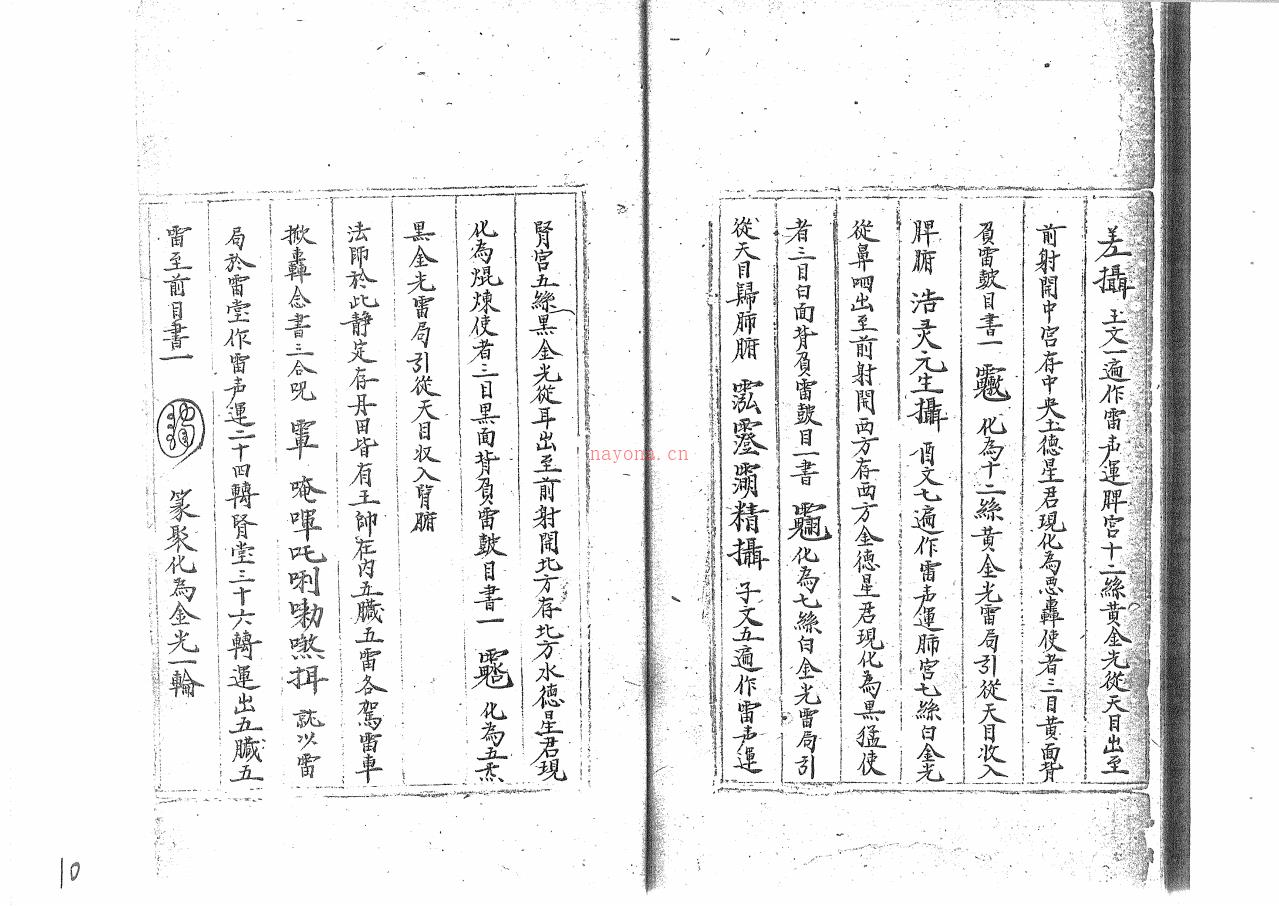 差攝 玉文一遍作雷声運脾宫十二絲黄金光從天目出至
前射開中宫存中央土德星君現化為悪轟使者三目黄面背
負雷皷目書一 化為十二絲黄金光雷局引從天目收入
脾腑 浩灵元生攝 酉文七遍作雷声運肺宫七絲白金光
從鼻呬出至前射開西方存西方金德星君現化為黒猛使
者三目白面背負雷皷目一書 化為七絲白金光雷局引
從天目歸肺腑 精攝 子文五遍作雷声運
腎宫五絲黒金光從耳出至前射開北方存北方水德星君現
化為焜煉使者三目黒面背負雷皷目書一 化為五炁
黒金光雷局引從天目収入腎腑
法師於此静定存丹田皆有王帥在内五臓五雷各駕雷車
掀轟念書三合呪 唵㖇吒唎 就以雷
局於雷堂作雷声運二十四轉腎堂三十六轉運出五臓五
雷至前目書一 篆聚化為金光一輪
nayona.cn
10